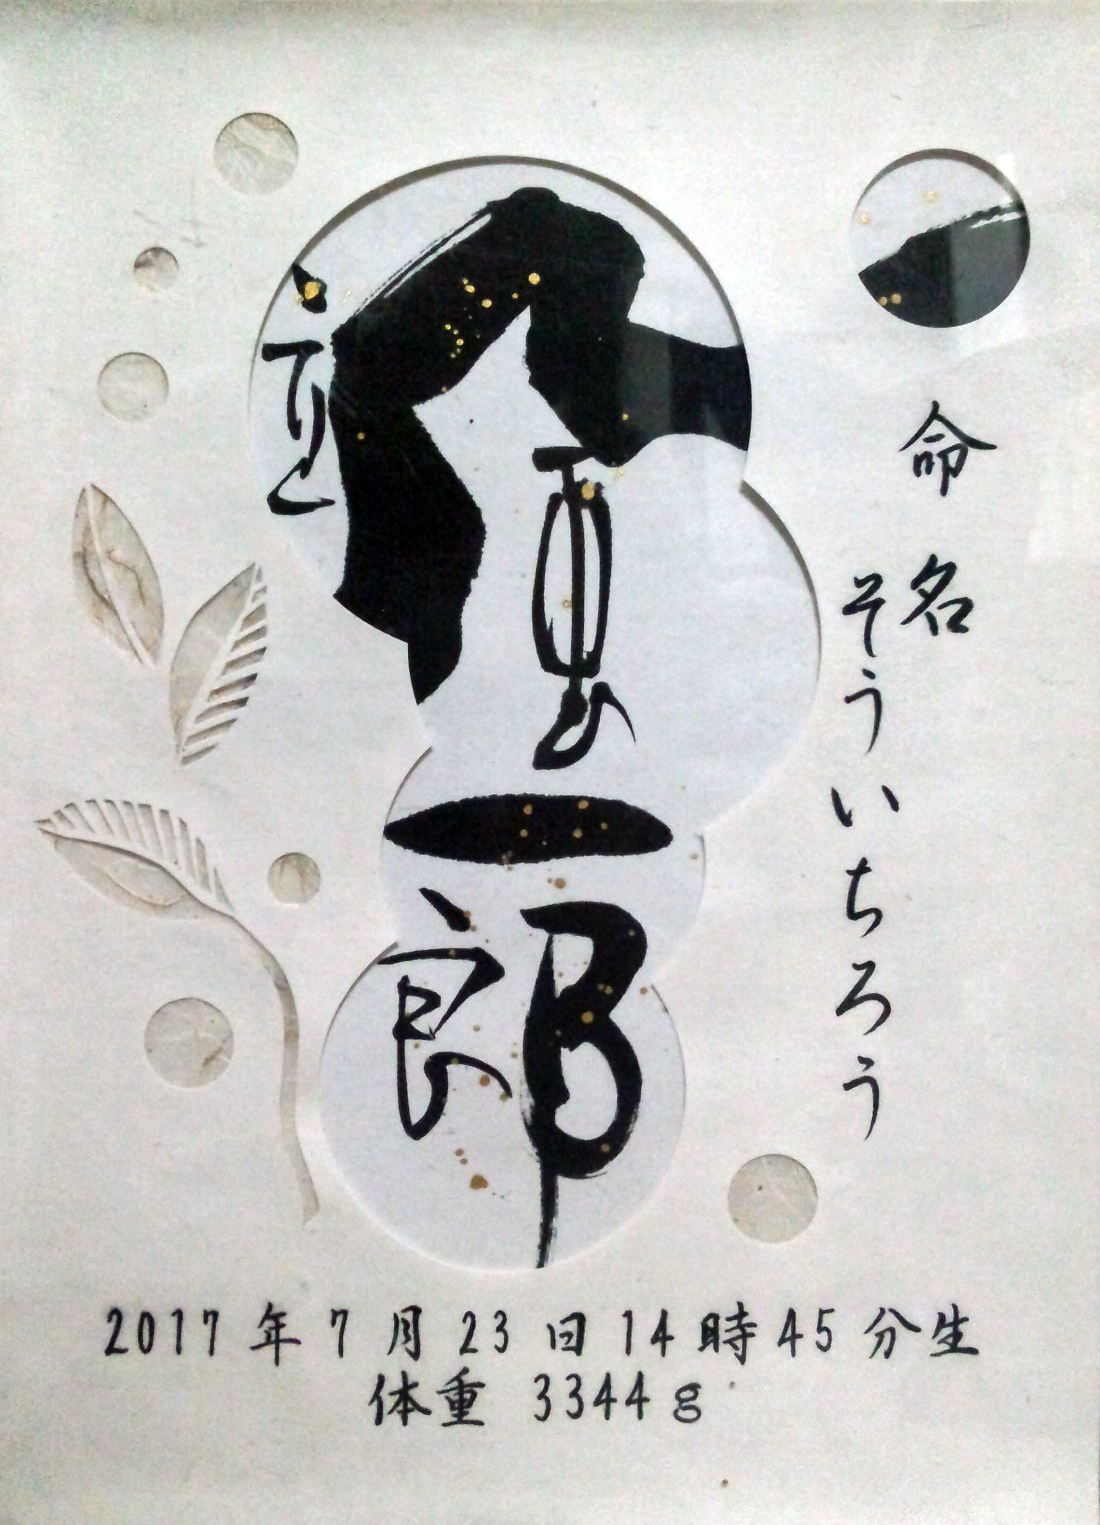 命名
そういちろう
颯一郎
2017年7月23日14時45分生
体重 3344g